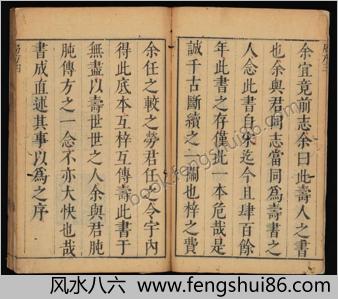 余宜竟前志余曰此壽人之書
也余與君同志當同為壽書之
人念此書自宋迄今且肆百餘
年此書之存僅此一本危哉是
誠千古斷續之一關也梓之費
余任之較之勞君任之令宇內
得此底本互梓互傳壽此書于
無盡以壽世世之人余與君肫
肫傳方之一念不亦大快也哉
書成直述其事以為之序
book.fengshui86.com
风水八六 www.fengshui86.com